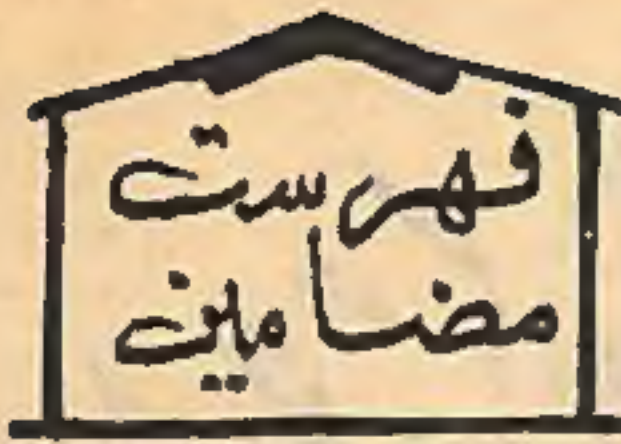 فهرست
مضامین